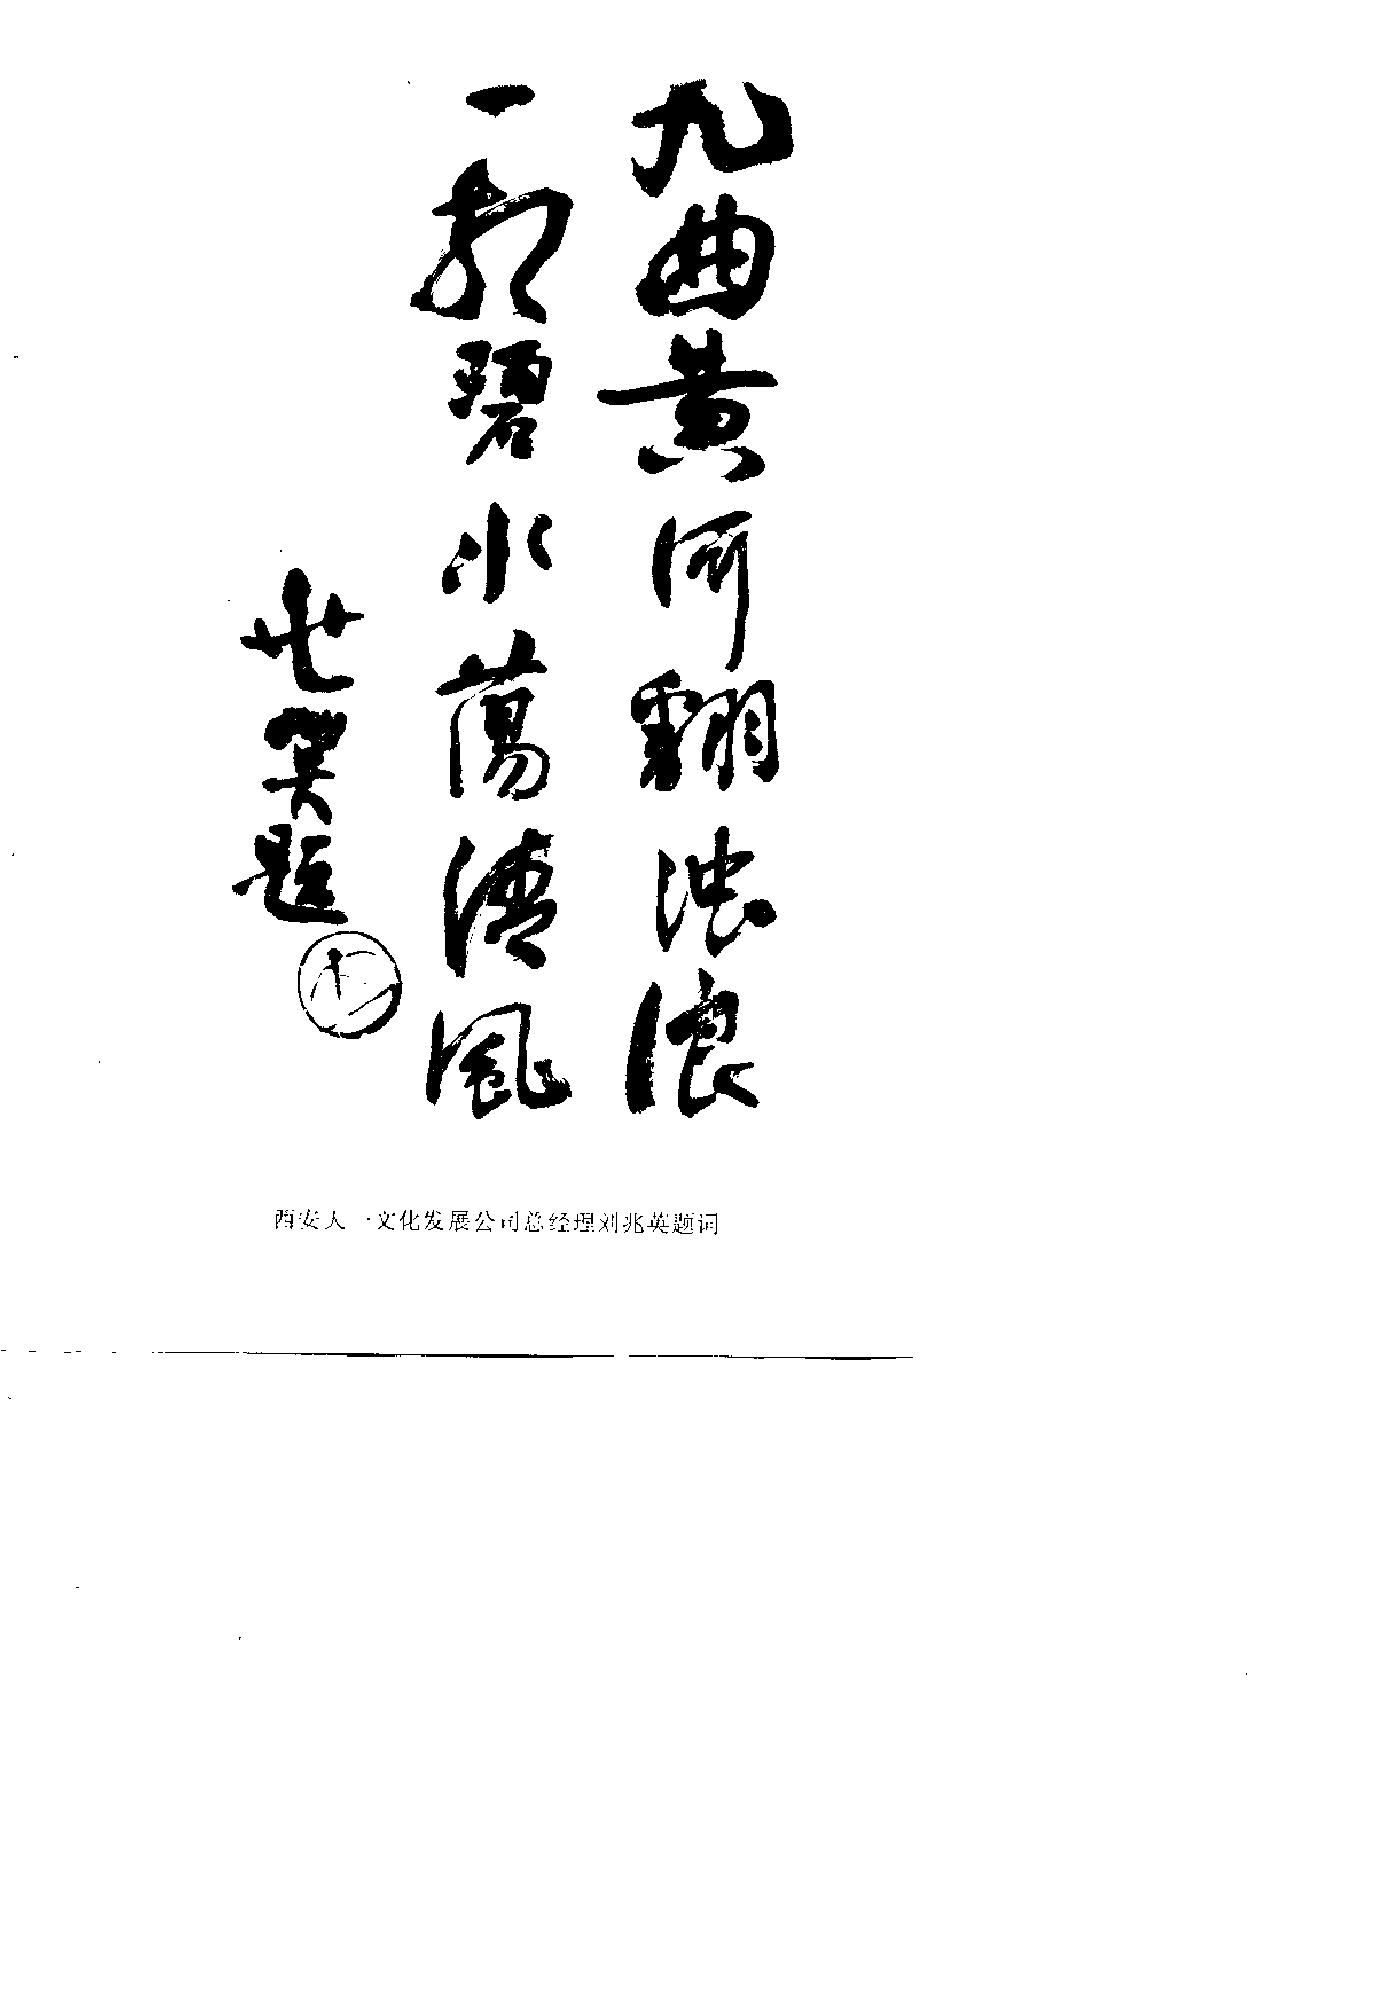 九曲黄河翻浊浪
一郡碧水蕩清风
世英题
西安大一文化发展公司总经理刘兆英题词